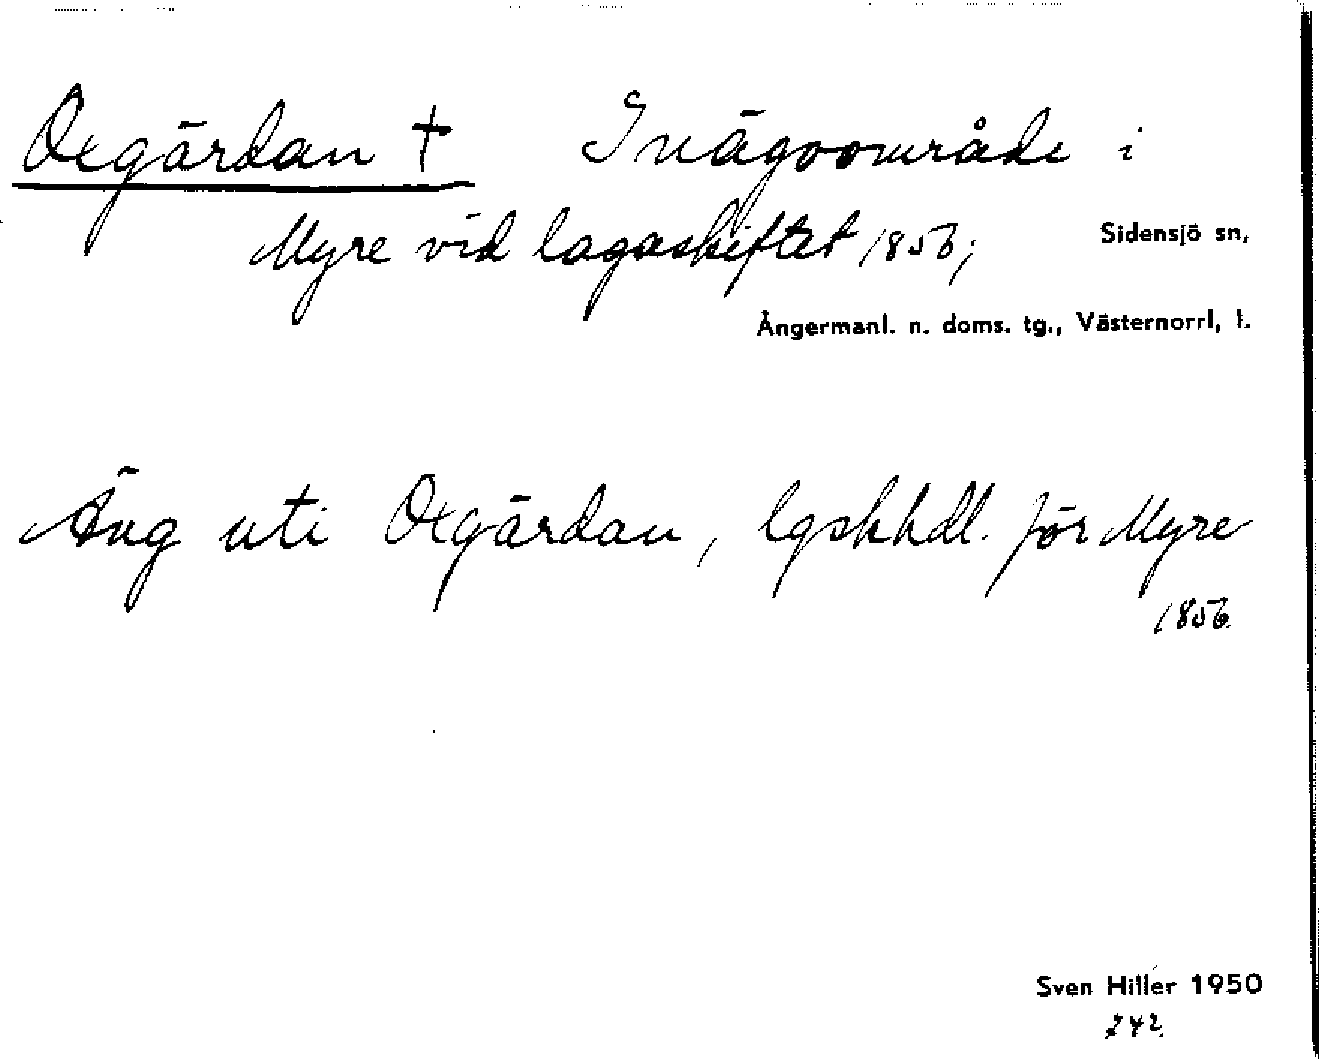 Oxgärdan †  Inägoområde i
Myre vid lagaskiftet 1856;
Sidensjö sn,
Ångermanl. n. doms. tg., Västernorrl, l.
Äng uti Oxgärdan, lgskhdl. för Myre
1856
Sven Hiller 1950
242